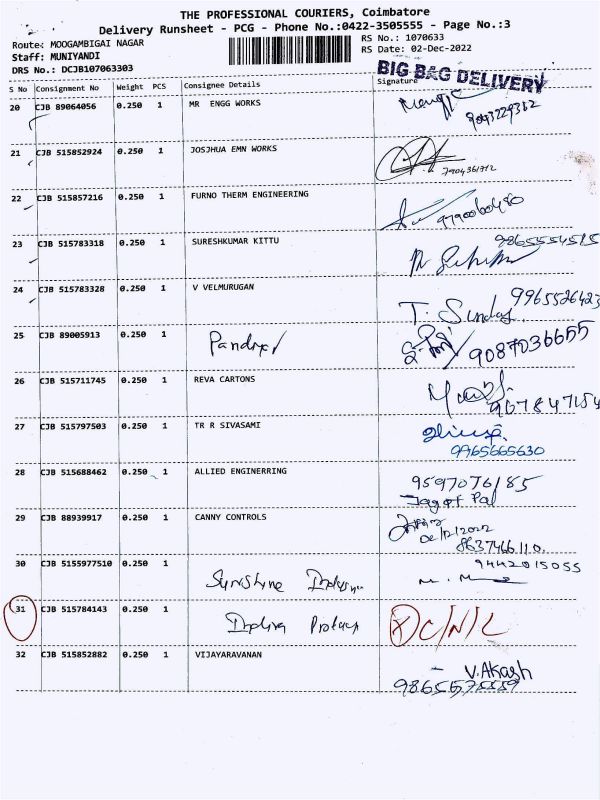 THE PROFESSIONAL COURIERS, Coimbatore
Delivery Runsheet - PCG - Phone No.:0422-3505555 - Page No.:3
Route: MOOGAMBIGAI NAGAR
RS No.: 1070633
Staff: MUNIYANDI
RS Date: 02-Dec-2022
DRS No.: DCJB107063303
BIG BAG DELIVERY
S No Consignment No Weight PCS Consignee Details Signature
20 CJB 89064056 0.250 1 MR ENGG WORKS
9043229312
21 CJB 515852924 0.250 1 JOSJHUA EMN WORKS
7904361712
22 CJB 515857216 0.250 1 FURNO THERM ENGINEERING
9790060480
23 CJB 515783318 0.250 1 SURESHKUMAR KITTU
9865554515
24 CJB 515783328 0.250 1 V VELMURUGAN
9965526423
T. Sundar
25 CJB 89005913 0.250 1
9087036655
26 CJB 515711745 0.250 1 REVA CARTONS
907847154
27 CJB 515797503 0.250 1 TR R SIVASAMI
9965665630
28 CJB 515688462 0.250 1 ALLIED ENGINERRING
9597076185
Jagat Pal
29 CJB 88939917 0.250 1 CANNY CONTROLS
02/12/2022
8637466110
30 CJB 5155977510 0.250 1 Sunshine
9442015055
31 CJB 515784143 0.250 1 C/N/L
32 CJB 515852882 0.250 1 VIJAYARAVANAN
V. Akash
9865575559